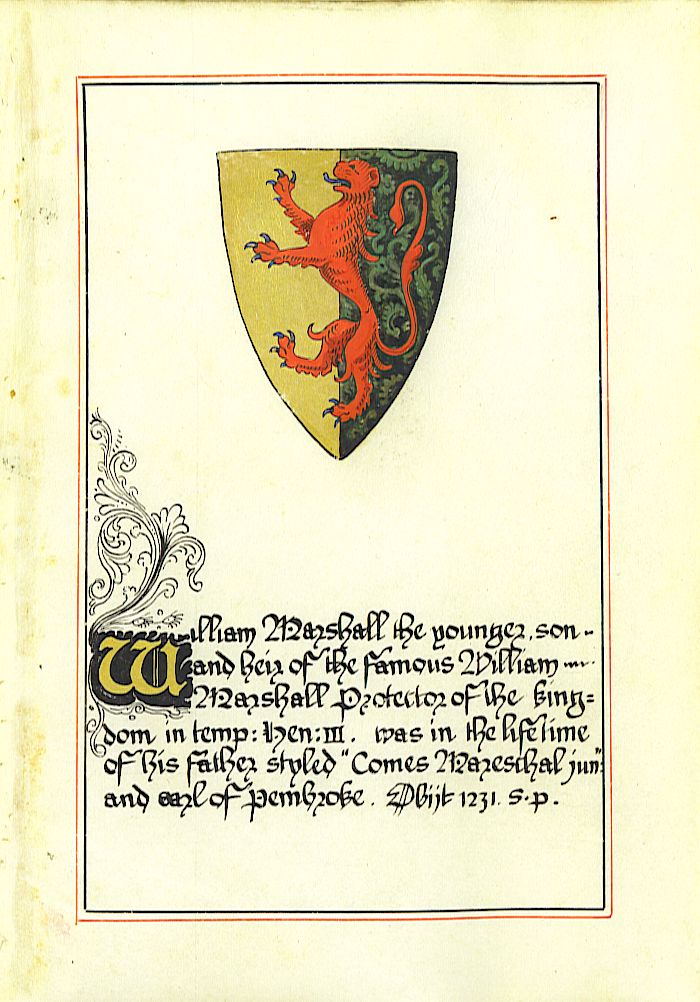 William Marshall the younger, son-
and heir of the famous William
Marshall Protector of the King=
dom in temp: Hen: III. was in the lifetime
of his father styled "Comes Mareschal jun":
and earl of Pembroke. Obijt 1231. s.p.